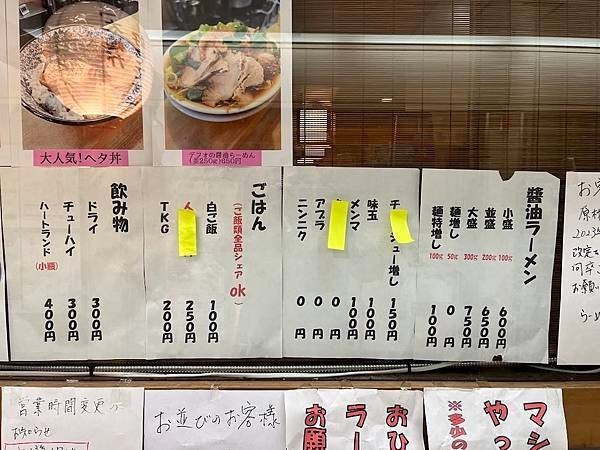 大人気!ヘタ丼
デフォの醤油らーめん
(並250g)650円
醤油ラーメン
小盛 100g 600円
並盛 200g 650円
大盛 300g 750円
麺増し 50g 0円
麺特増し 100g 100円
チ シュー増し 150円
味玉 100円
メンマ 100円
アブラ 0円
ニンニク 0円
ごはん
(ご飯類全品シェアok)
白ご飯 100円
250円
TKG 200円
飲み物
ドライ 300円
チューハイ 300円
ハートランド(小瓶) 400円
営業時間変更の
お知らせ
お並びのお客様
おひ
ラー
お願
マシ
やっ
※多少の